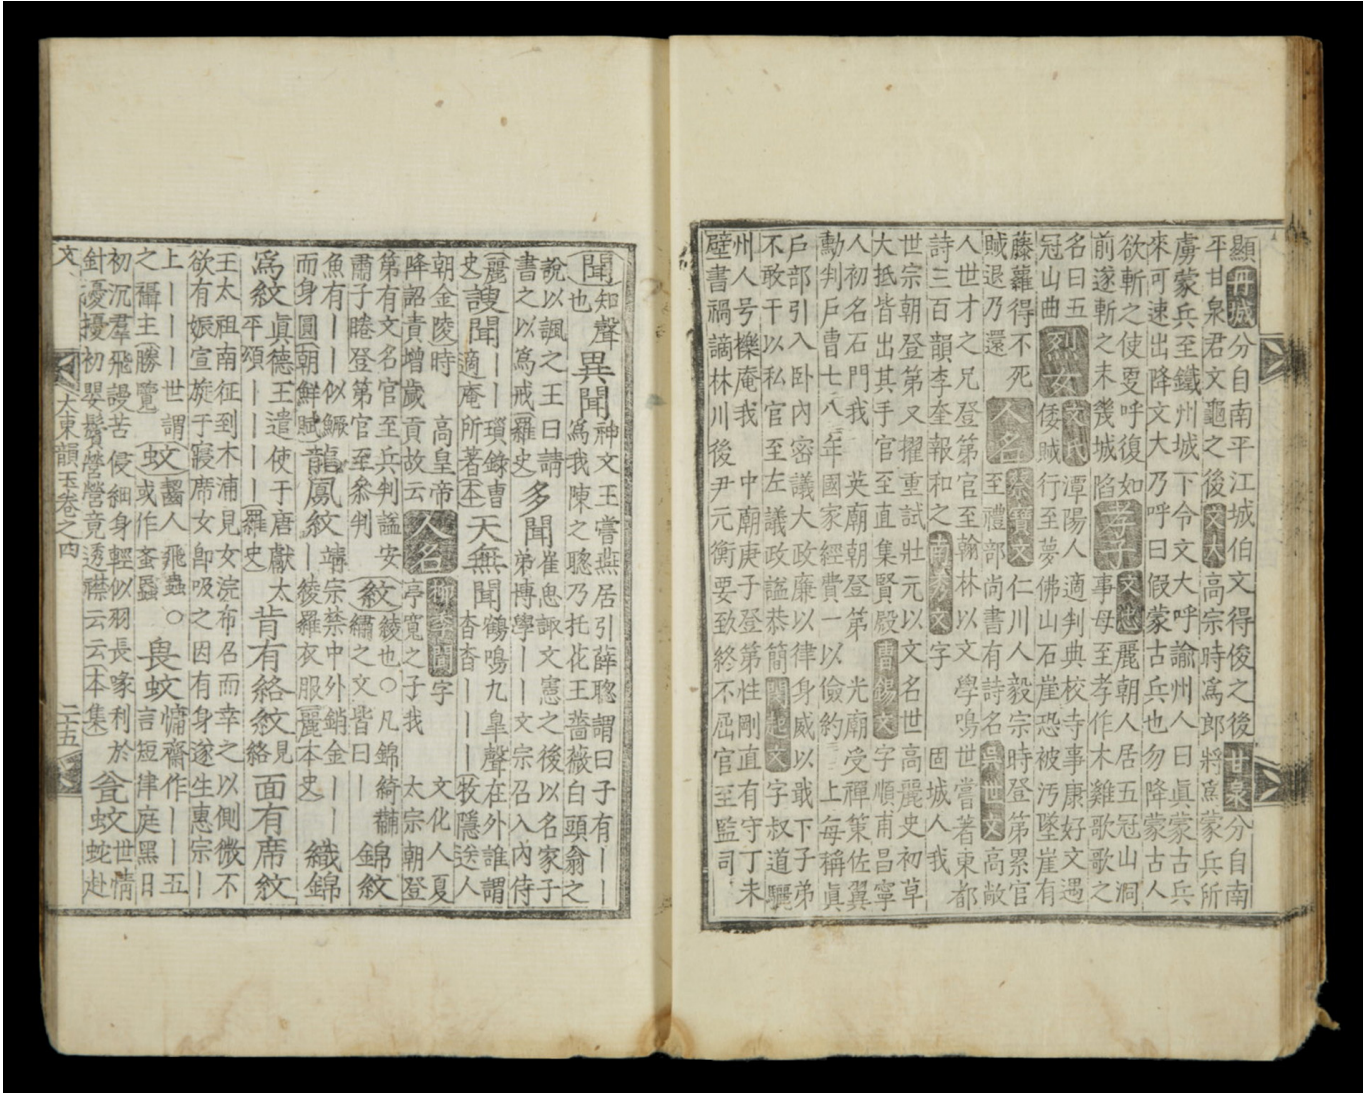 顯丹城分自南平江城伯文得俊之後甘泉分自南
平甘泉君文龜之後文大高宗時為郎將為蒙兵所
虜蒙兵至鐵州城下令文大呼諭州人曰眞蒙古兵
來可速出降文大乃呼曰假蒙古兵也勿降蒙古人
欲斬之使叓呼復如
前遂斬之未幾城陷
孝子
文忠麗朝人居五冠山洞
事母至孝作木雞歌歌之
名曰五
冠山曲
烈女
文氏潭陽人適判典校寺事康好文遇
倭賊行至夢佛山石崖恐被汚墜崖有
藤蘿得不死
賊退乃還
人名
蔡寶文仁川人毅宗時登第累官
至禮部尚書有詩名吳世文高敞
人世才之兄登第官至翰林以文學鳴世嘗著東都
詩三百韻李奎報和之南秀文字 固城人我
世宗朝登第又擢重試壯元以文名世高麗史初草
大抵皆出其手官至直集賢殿曺錫文字順甫昌寧
人初名石門我 英廟朝登第 光廟受禪策佐翼
勳判戶曺七八年國家經費一以儉約 上每稱眞
戶部引入卧內密議大政廉以律身威以戢下子弟
不敢干以私官至左議政謚恭簡閔起文字叔道驪
州人号櫟庵我 中廟庚子登第性剛直有守丁未
壁書禍謫林川後尹元衡要致終不屈官至監司
聞知聲
也
異聞
神文王嘗燕居引薛聰謂曰子有丨丨
為我陳之聰乃托花王薔薇白頭翁之
說以諷之王曰請
書之以為戒羅史
多聞
崔思諏文憲之後以名家子
弟博學丨丨文宗召入內侍
麗
史
謏聞
丨丨瑣錄曺
適庵所著本
天無聞
鶴鳴九皐聲在外誰謂
杳杳丨丨丨牧隱送人
朝金陵時 高皇帝
降詔責增歲貢故云
人名
柳季聞字 文化人夏
亭寬之子我 太宗朝登
第有文名官至兵判謚安
肅子睠登第官至參判
紋
綾也○凡錦綺黼
繡之文皆曰丨
錦紋
魚有丨丨似鱖
而身圓朝鮮賦
龍鳳紋
靖宗禁中外銷金丨丨
丨綾羅衣服麗本史
織錦
為紋
眞德王遣使于唐獻太
平頌丨丨丨丨羅史
肯有絡紋
見
絡
面有席紋
王太祖南征到木浦見女浣布召而幸之以側微不
欲有娠宣旋于寢席女卽吸之因有身遂生惠宗丨
上丨丨丨世謂
之襵主勝覽
蚊
齧人飛蟲○
或作䖟蟁
畏蚊
慵齋作丨丨五
言短律庭黑日
初沉羣飛謾苦侵細身輕似羽長喙利於
針擾擾初嬰鬢營營竟透襟云云本集
瓮蚊
世情
蛇赴
文 大東韻玉卷之四 二十五